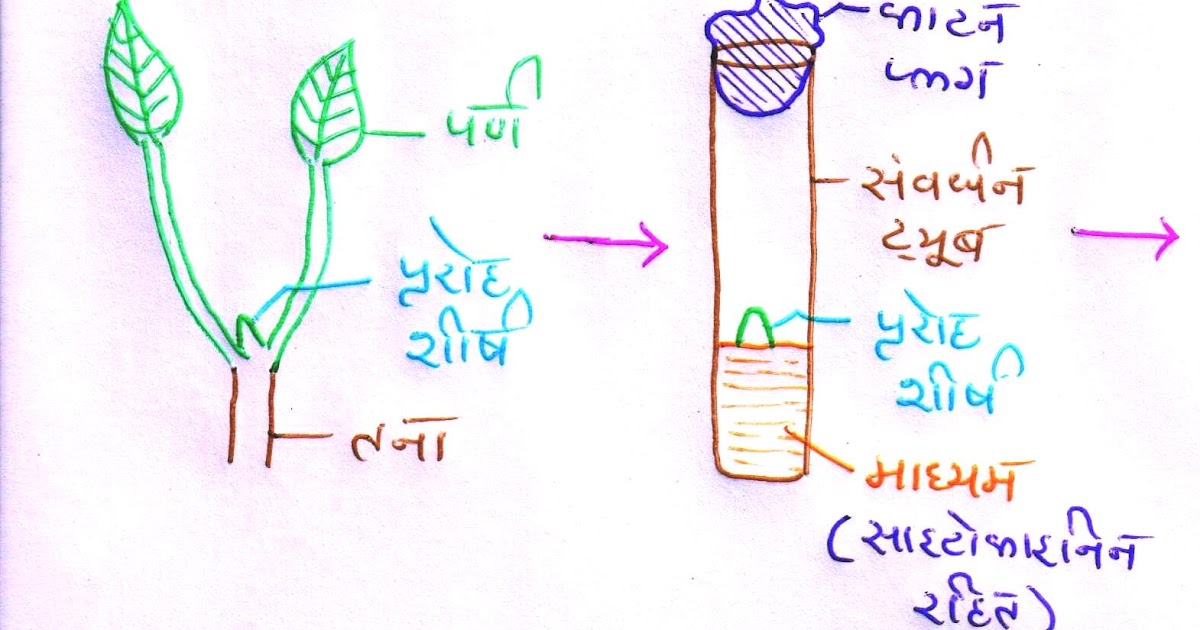 पर्ण
प्ररोह
शीर्ष
तना
काटन
प्लग
संवर्धन
ट्यूब
प्ररोह
शीर्ष
माध्यम
(साइटोकाइनिन
रहित)